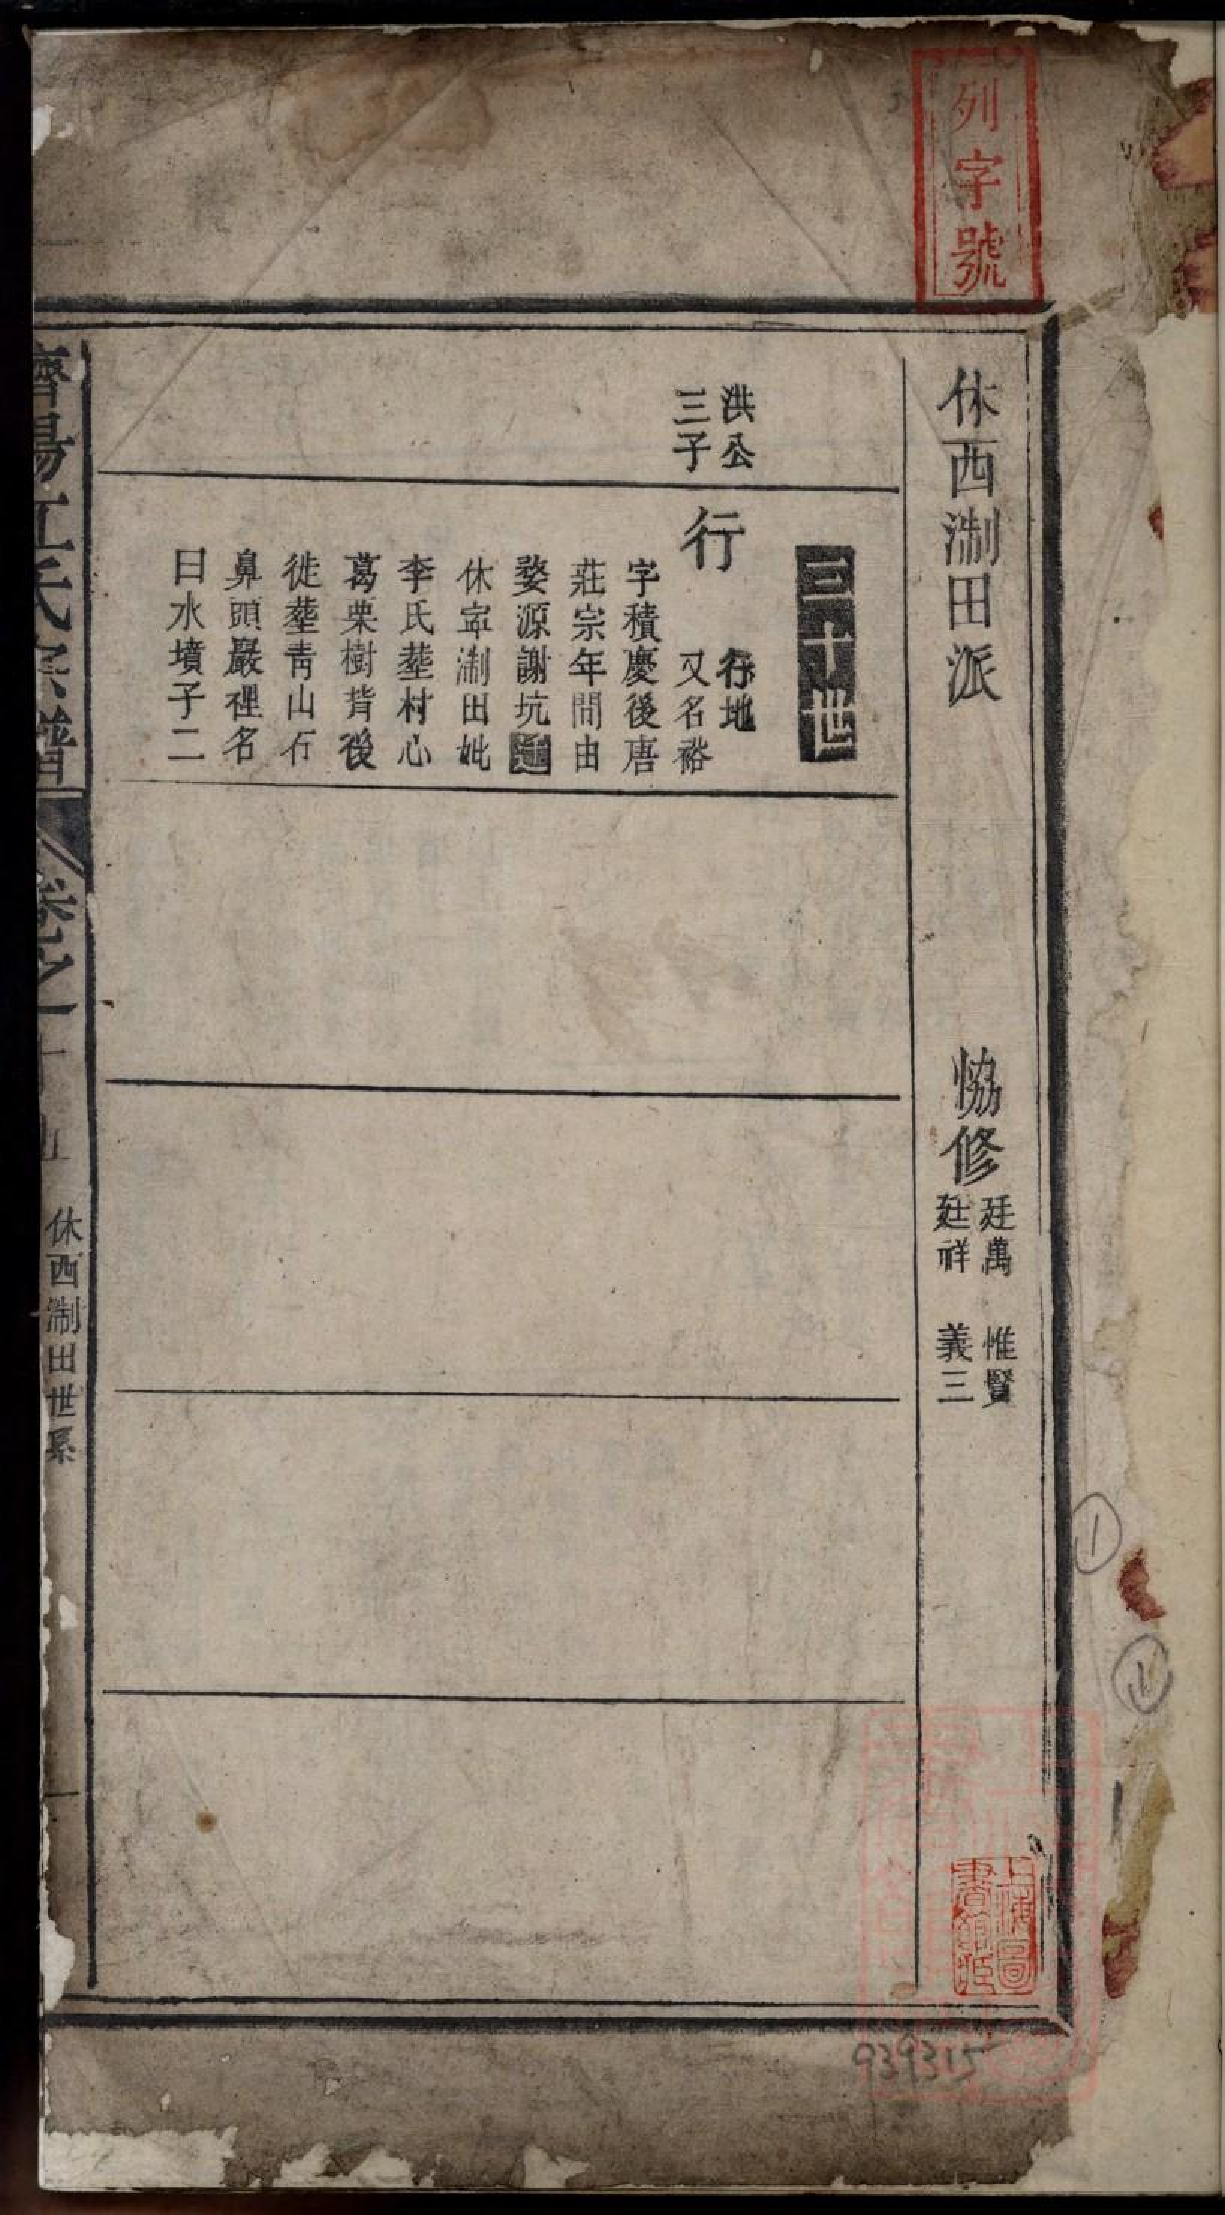 列字號
休西淛田派
協修
廷萬 惟賢
廷祥 義三
三十世
洪公
三子
行
行地
又名裕
字積慶後唐
莊宗年間由
婺源謝坑遷
休寕淛田妣
李氏塟村心
葛栗樹背後
徙塟青山石
鼻頭嚴裡名
曰水墳子二
濟陽江氏宗譜
卷之十五
休西淛田世系
一
上海圖
書館藏
939315
1
11